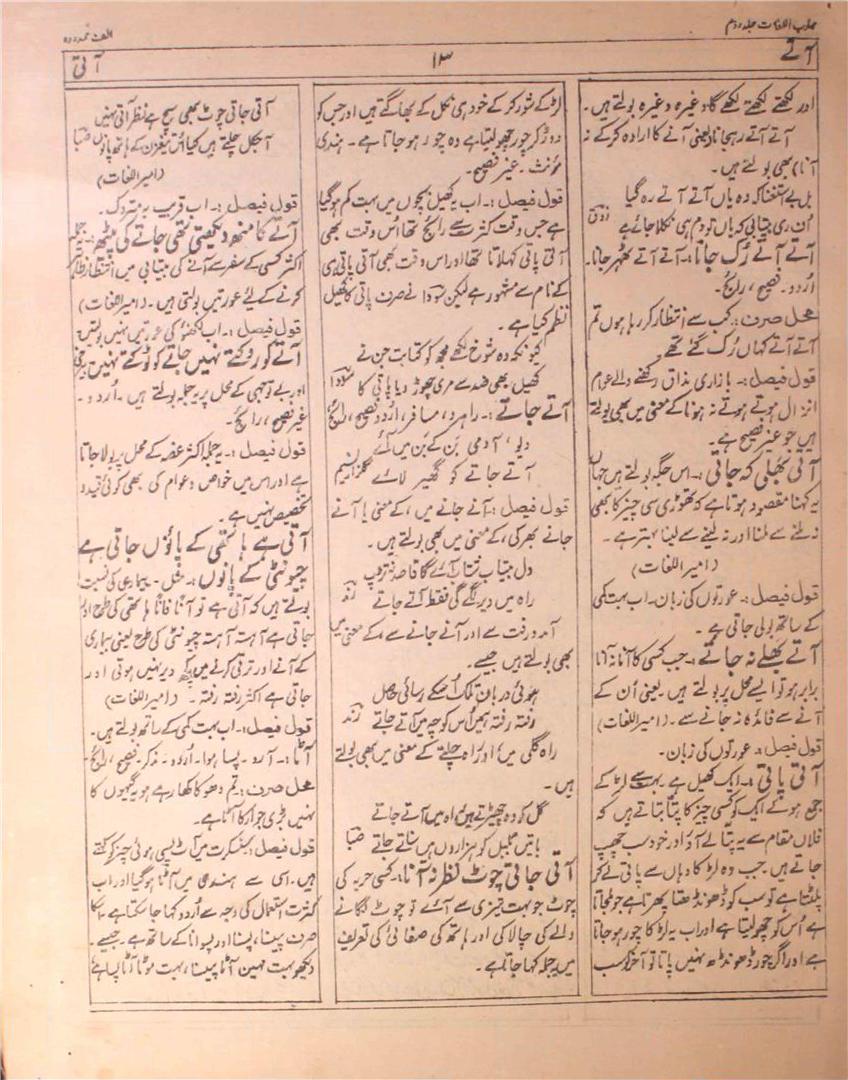 مہذب اللغات جلد دوم
الف ممدودہ
آتے
۱۳
آتی
اور لکھتے لکھتے لکھے گا وغیرہ وغیرہ بولتے ہیں۔
آتے آتے رہجانا (یعنی آنے کا ارادہ کر کے نہ
آنا) بھی بولتے ہیں۔
بل بے استغنا کہ وہ یاں آتے آتے رہ گیا
اُف ری بیتابی کہ یاں تو دم ہی نکلا جائے ہے ذوق
آتے آتے رُک جانا:۔ آتے آتے ٹھہر جانا۔
اُردو۔ فصیح، رائج۔
محل صرف:۔ کب سے انتظار کر رہا ہوں تم
آتے آتے کہاں رُک گئے تھے
قول فیصل:۔ بازاری مذاق رکھنے والے عوام
انزال ہوتے ہوتے نہ ہونا کے معنی میں بھی بولتے
ہیں جو غیر فصیح ہے۔
آتی بھلی کہ جاتی:۔ اس جگہ بولتے ہیں جہاں
یہ کہنا مقصود ہوتا ہے کہ تھوڑی سی چیز کا بھی
نہ ملنے سے ملنا اور نہ لینے سے لینا بہتر ہے۔
(امیر اللغات)
قول فیصل:۔ عورتوں کی زبان۔ اب بہت کمی
کے ساتھ بولی جاتی ہے۔
آتے بھلے نہ جاتے:۔ جب کسی کا آنا نہ آنا
برابر ہو تو ایسے محل پر بولتے ہیں یعنی اُن کے
آنے سے فائدہ نہ جانے سے۔ (امیر اللغات)
قول فیصل:۔ عورتوں کی زبان۔
آتی پاتی:۔ ایک کھیل ہے۔ بہت سے لڑکے
جمع ہوئے ایک کو کسی چیز کا پتا بتاتے ہیں کہ
فلاں مقام سے یہ پتا لے آؤ اور خود سب چھپ
جاتے ہیں۔ جب وہ لڑکا وہاں سے پاتی لے کر
پلٹتا ہے تو سب کو ڈھونڈھتا پھرتا ہے جو ملجاتا
ہے اُس کو چھو لیتا ہے اور اب یہ لڑکا چور ہو جاتا
ہے اور اگر چور ڈھونڈھ نہیں پاتا تو آخر کو سب
لڑکے شور کر کے خود ہی نکل کے بھاگتے ہیں اور جس کو
دوڑ کر چور چھو لیتا ہے وہ چور ہو جاتا ہے۔ ہندی
مؤنث۔ غیر فصیح۔
قول فیصل:۔ اب یہ کھیل بچوں میں بہت کم ہو گیا
ہے جس وقت کثرت سے رائج تھا اُس وقت بھی
آتی پاتی کہلاتا تھا اور اس وقت بھی آتی پاتی ہی
کے نام سے مشہور ہے لیکن سودا نے صرف پاتی کا کھیل
نظم کیا ہے۔
کیونکہ وہ شوخ لکھے مجھ کو کتابت جن نے
کھیل بھی ضد سے مری چھوڑ دیا پاتی کا سودا
آتے جاتے:۔ راہرو، مسافر، اُردو فصیح، رائج
دیو، آدمی بَن کے بَن میں آئے
آتے جاتے کو گھیر لائے گلزار نسیم
قول فیصل:۔ آنے جانے میں، کے معنی یا آنے
جانے بھر کی، کے معنی میں بھی بولتے ہیں۔
دل بیتاب شتاب آئے گا قاصد نہ تڑپ
راہ میں دیر لگے گی فقط آتے جاتے رند
آمد و رفت سے اور آنے جانے سے، کے معنی میں
بھی بولتے ہیں جیسے۔
ہوئی دربان تلک اُسکے رسائی حاصل
رفتہ رفتہ ہمیں اُس کوچہ میں آتے جاتے رند
راہ گلی میں، اور راہ چلتے کے معنی میں بھی بولتے
ہیں۔
گل کو وہ چھیڑتے ہیں راہ میں آتے جاتے
باتیں بلبل کو ہزاروں ہیں سناتے جاتے صبا
آتی جاتی چوٹ نظر نہ آنا:۔ کسی حربہ کی
چوٹ جو بہت تیزی سے آئے تو چوٹ لگانے
والے کی چالاکی اور ہاتھ کی صفائی کی تعریف
میں یہ جملہ کہا جاتا ہے۔
آتی جاتی چوٹ بھی سچ ہے نظر آتی نہیں
آجکل چلتے ہیں کیا اُس تیغزن کے ہاتھ پانوں صبا
(امیر اللغات)
قول فیصل:۔ اب قریب بہ متروک۔
آتے کا منھ دیکھتی تھی جاتے کی پیٹھ:۔ یہ جملہ
اکثر کسی کے سفر سے آنے کی بیتابی میں انتظار ظاہر
کرنے کے لئے عورتیں بولتی ہیں۔ (امیر اللغات)
قول فیصل:۔ اب لکھنؤ کی عورتیں نہیں بولتیں
آتے کو روکتے نہیں جاتے کو ٹوکتے نہیں:۔ بیرخی
اور بے توجہی کے محل پر یہ جملہ بولتے ہیں۔ اُردو۔
غیر فصیح، رائج۔
قول فیصل:۔ یہ جملہ اکثر غصہ کے محل پر بولا جاتا
ہے اور اس میں خواص و عوام کی بھی کوئی قید و
تخصیص نہیں ہے۔
آتی ہے ہاتھی کے پاؤں جاتی ہے
چیونٹی کے پانوں:۔ مثل۔ بیماری کی نسبت
بولتے ہیں کہ آتی ہے تو آناً فاناً ہاتھی کی طرح اور
جاتی ہے آہستہ آہستہ چیونٹی کی طرح یعنی بیماری
کے آنے اور ترقی کرنے میں کچھ دیر نہیں ہوتی اور
جاتی ہے اکثر رفتہ رفتہ۔ (امیر اللغات)
قول فیصل:۔ اب بہت کمی کے ساتھ بولتے ہیں۔
آٹا:۔ آرد۔ پسا ہوا۔ اُردو۔ مذکر۔ فصیح، رائج۔
محل صرف:۔ تم دھوکا کھا رہے ہو یہ گیہوں کا
نہیں بڑی جوار کا آٹا ہے۔
قول فیصل:۔ سنسکرت میں آٹ پسی ہوئی چیز کو کہتے
ہیں۔ اسی سے ہندی میں آٹا ہو گیا اور اب
کثرت استعمال کی وجہ سے اُردو کہا جا سکتا ہے۔ اسکا
صرف پیسنا، پسنا اور پسوانا کے ساتھ ہے۔ جیسے۔
دیکھو بہت مہین آٹا پیسنا، بہت موٹا آٹا پسا ہے